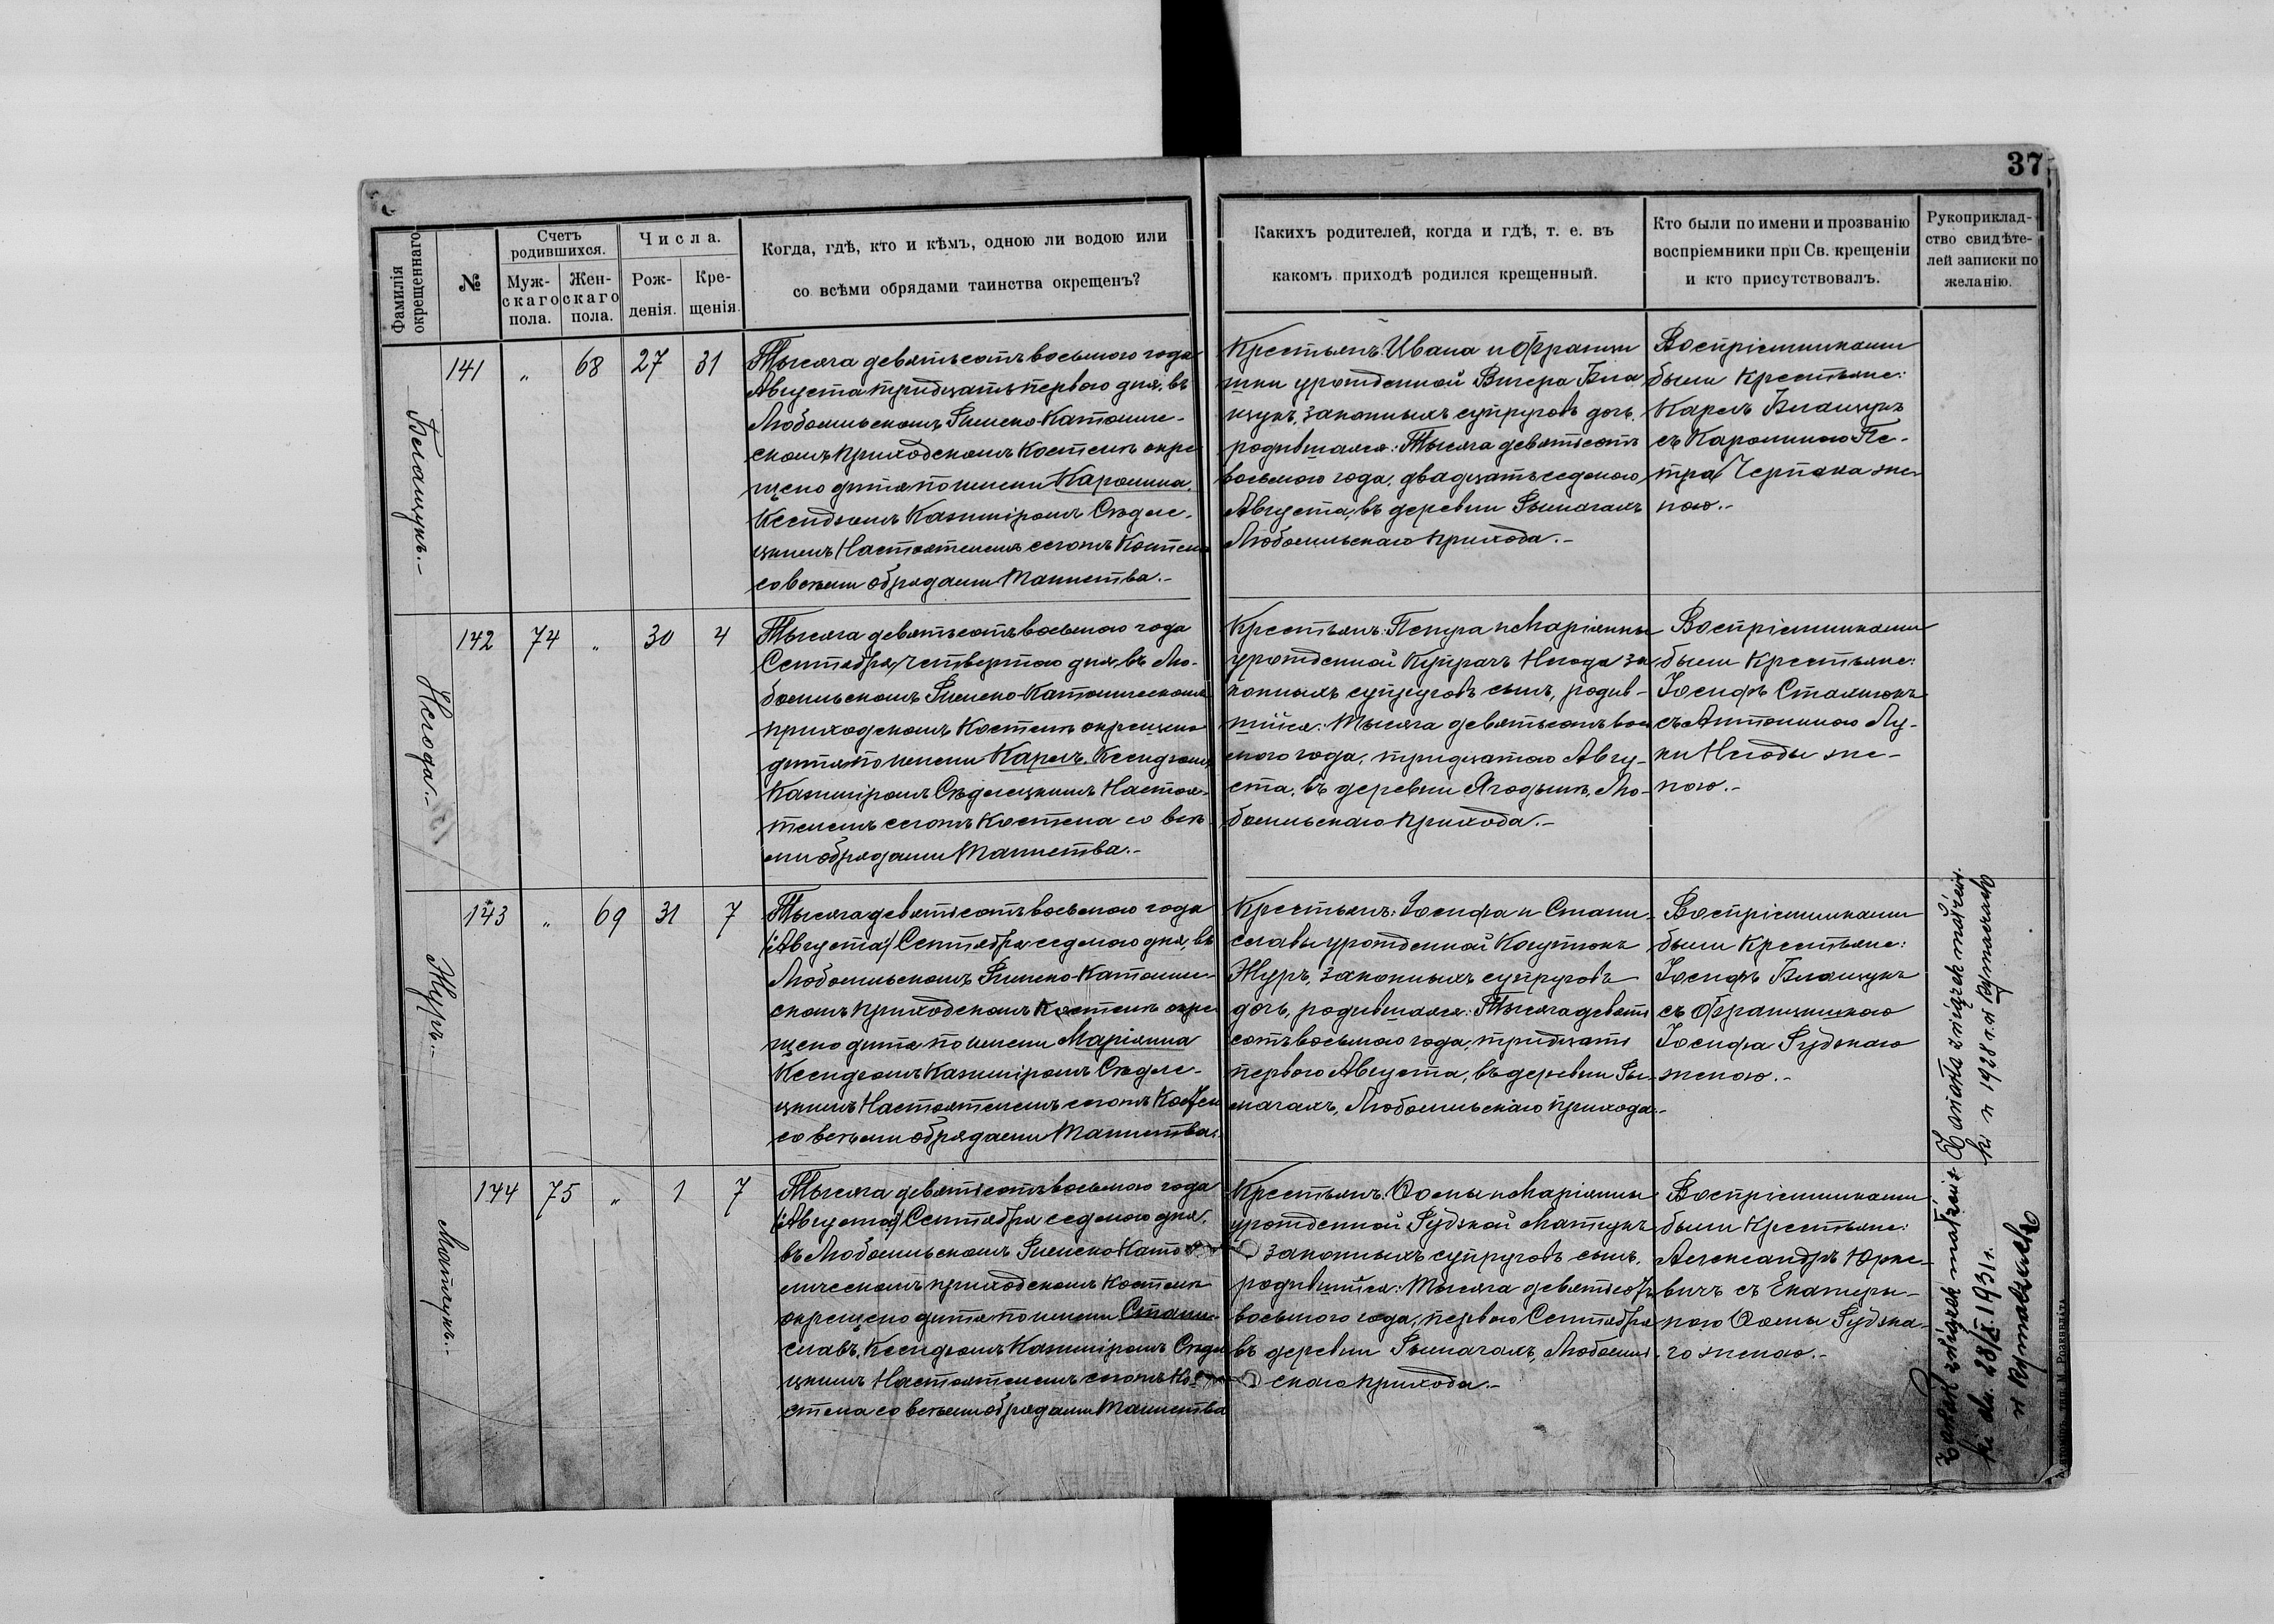 37
Фамилія окрещеннаго
№
Счетъ родившихся.
Муж-
скаго
пола.
Жен-
скаго
пола.
Числа.
Рож-
денія.
Кре-
щенія.
Когда, гдѣ, кто и кѣмъ, одною ли водою или
со всѣми обрядами таинства окрещенъ?
Какихъ родителей, когда и гдѣ, т. е. въ
какомъ приходѣ родился крещенный.
Кто были по имени и прозванію
воспріемники при Св. крещеніи
и кто присутствовалъ.
Рукоприклад-
ство свидѣте-
лей записки по
желанію.
141 „ 68 27 31
Тысяча девятьсотъ восьмого года
Августа тридцать перваго дня, въ
Любомльскомъ Римско-Католиче-
скомъ приходскомъ Костелѣ окре
щено дитя по имени Каролина.
Ксендзомъ Казиміромъ Сѣдле-
цкимъ Настоятелемъ сегожъ Костела
со всѣми обрядами Таинства.-
Крестьянъ: Ивана и Францы
шки урожденной Вигера Бла
щукъ, законныхъ супруговъ дочь
родившаяся: Тысяча девятьсотъ
восьмого года, двадцать седьмого
Августа, въ деревни Рымачахъ
Любомльскаго прихода.-
Воспріемниками
были Крестьяне:
Карлъ Блащукъ
съ Каролиною Пе-
тра Черпака же-
ною.-
142 74 „ 30 4
Негода.-
Тысяча девятьсотъ восьмого года
Сентября, четвертаго дня, въ Лю-
бомльскомъ Римско-Католическомъ
приходскомъ Костелѣ окрещено
дитя по имени Карлъ. Ксендзомъ
Казиміромъ Сѣдлецкимъ Настоя-
телемъ сегожъ Костела со всѣ-
ми обрядами Таинства.-
Крестьянъ: Петра и Маріянны
урожденной Купрачъ Негода за
конныхъ супруговъ сынъ, родив-
шійся: Тысяча девятьсотъ вось
мого года, тридцатаго Авгу-
ста, въ деревни Ягодинѣ, Лю-
бомльскаго прихода.-
Воспріемниками
были Крестьяне:
Іосифъ Сталюкъ
съ Антониною Лу-
ки Негоды же-
ною.-
143 „ 69 31 7
Журъ.-
Тысяча девятьсотъ восьмого года
/:Августа:/ Сентября седьмого дня, въ
Любомльскомъ Римско-Католиче-
скомъ приходскомъ Костелѣ окре
щено дитя по имени Маріянна
Ксендзомъ Казиміромъ Сѣдле-
цкимъ Настоятелемъ сегожъ Костела
со всѣми обрядами Таинства.
Крестьянъ: Іосифа и Стани-
славы урожденной Костюкъ
Журъ, законныхъ супруговъ
дочь, родившаяся: Тысяча девять
сотъ восьмого года, тридцать
перваго Августа, въ деревни Ры-
мачахъ, Любомльскаго прихода.-
Воспріемниками
были Крестьяне:
Іосифъ Блащукъ
съ Францишкою
Іосифа Рудзкаго
женою.-
144 75 „ 1 7
Матщукъ.-
Тысяча девятьсотъ восьмого года
/:Августа:/ Сентября седьмого дня,
въ Любомльскомъ Римско Като
лическомъ приходскомъ Костелѣ
окрещено дитя по имени Стани-
славъ, Ксендзомъ Казиміромъ Сѣдле
цкимъ Настоятелемъ сегожъ Ко
стела со всѣми обрядами Таинства
Крестьянъ: Ѳомы и Маріянны
урожденной Рудзкой
законныхъ супруговъ сынъ,
родившійся: Тысяча девятьсотъ
восьмого года, перваго Сентября
въ деревни Рымачахъ, Любомль
скаго прихода.-
Воспріемниками
были Крестьяне:
Александръ Юрке-
вичъ съ Екатери-
ною Ѳомы Рудзка-
го женою.-
Zawarła związek małżeńs.
ki w 1928 r.
Zawarł związek małżeńs
ki dn. 28/X 1931 r.